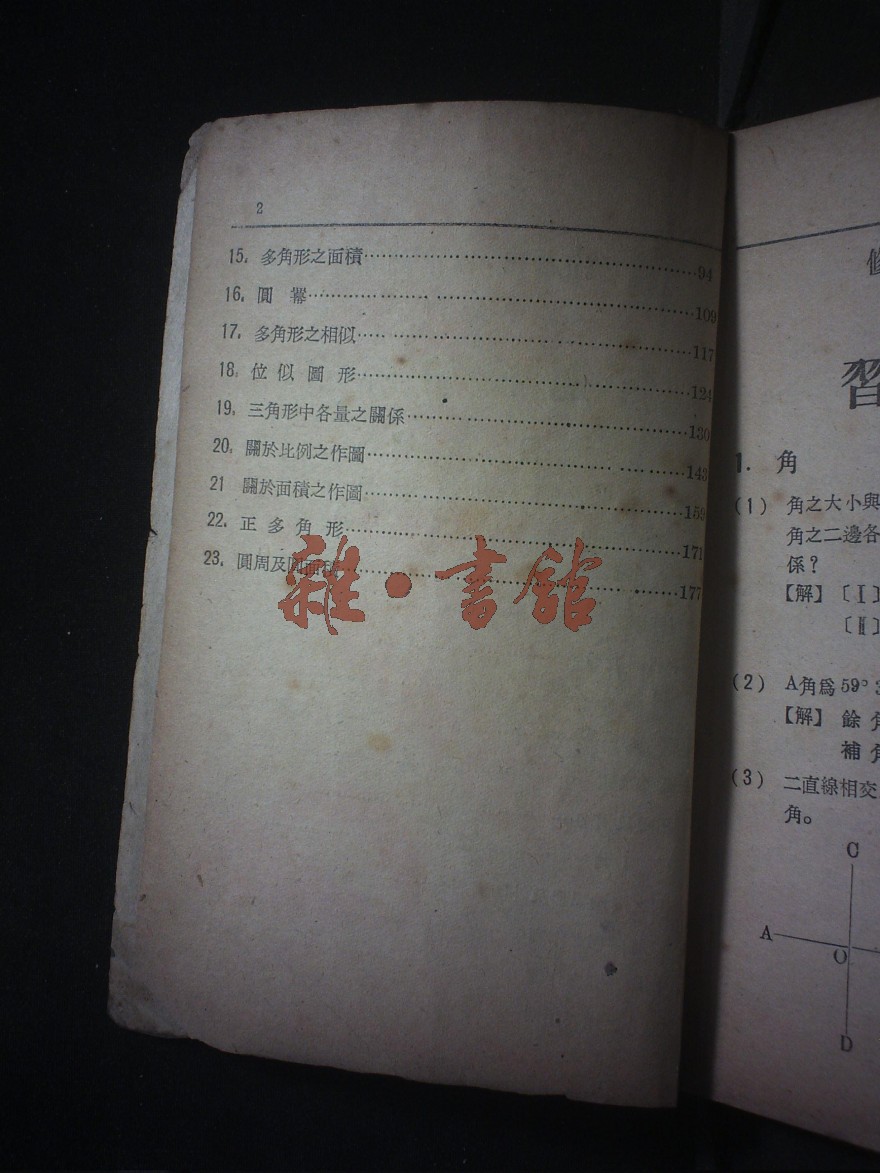 2
15. 多角形之面積……94
16. 圓冪……109
17. 多角形之相似……117
18. 位似圖形……124
19. 三角形中各量之關係……130
20. 關於比例之作圖……143
21 關於面積之作圖……159
22. 正多角形……171
23. 圓周及圓面積……177
雜·書館
習
1. 角
(1) 角之大小與
角之二邊各
係?
【解】〔Ⅰ〕
〔Ⅱ〕
(2) A角爲59°
【解】餘角
補角
(3) 二直線相交
角。
C
A
O
D